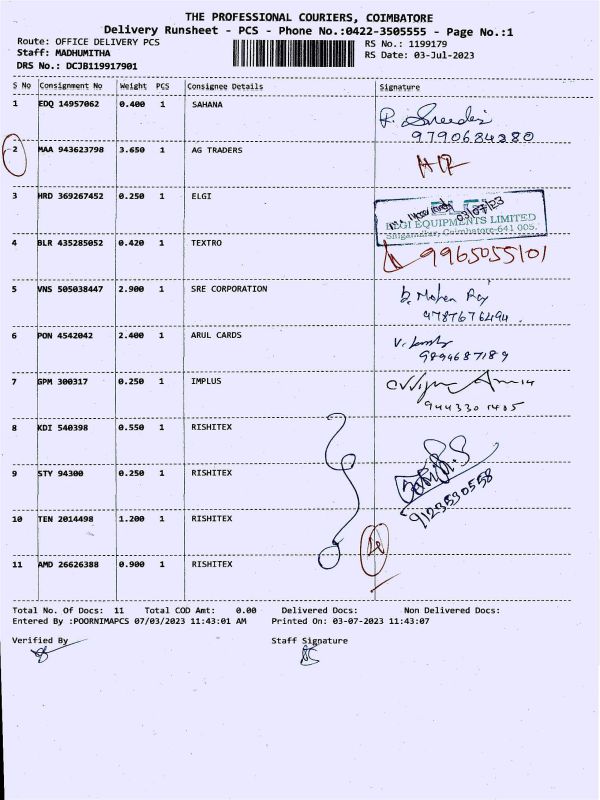 THE PROFESSIONAL COURIERS, COIMBATORE
Delivery Runsheet - PCS - Phone No.:0422-3505555 - Page No.:1
Route: OFFICE DELIVERY PCS
RS No.: 1199179
Staff: MADHUMITHA
RS Date: 03-Jul-2023
DRS No.: DCJB119917901
S No Consignment No Weight PCS Consignee Details Signature
1 EDQ 14957062 0.400 1 SAHANA
9790684380
2 MAA 943623798 3.650 1 AG TRADERS
3 HRD 369267452 0.250 1 ELGI
03/07/23
ELGI EQUIPMENTS LIMITED
Singanallur, Coimbatore-641 005.
4 BLR 435285052 0.420 1 TEXTRO
9965055101
5 VNS 505038447 2.900 1 SRE CORPORATION
9787676494
6 PON 4542042 2.400 1 ARUL CARDS
9894687189
7 GPM 300317 0.250 1 IMPLUS
9443301405
8 KDI 540398 0.550 1 RISHITEX
9 STY 94300 0.250 1 RISHITEX
9123530558
10 TEN 2014498 1.200 1 RISHITEX
11 AMD 26626388 0.900 1 RISHITEX
Total No. Of Docs: 11 Total COD Amt: 0.00 Delivered Docs: Non Delivered Docs:
Entered By :POORNIMAPCS 07/03/2023 11:43:01 AM Printed On: 03-07-2023 11:43:07
Verified By Staff Signature